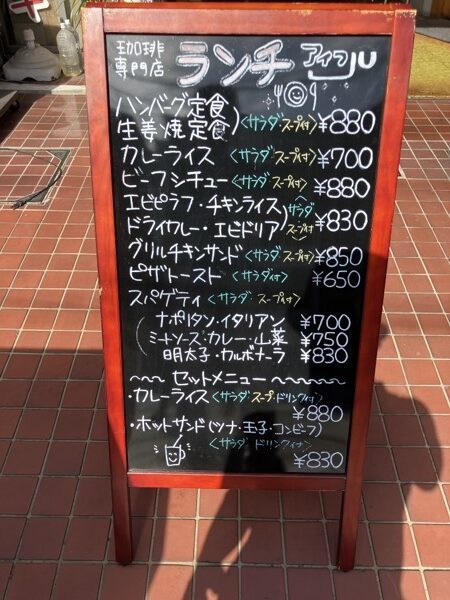 珈琲
専門店
ランチ
アイつju
ハンバーグ定食
生姜焼定食
〈サラダ スープ付〉 ¥880
カレーライス 〈サラダ スープ付〉 ¥700
ビーフシチュー 〈サラダ スープ付〉 ¥880
エビピラフ・チキンライス
ドライカレー・エビドリア
〈サラダ スープ付〉 ¥830
グリルチキンサンド 〈サラダ スープ付〉 ¥850
ピザトースト 〈サラダ付〉 ¥650
スパゲティ 〈サラダ スープ付〉
ナポリタン・イタリアン ¥700
ミートソース・カレー・山菜 ¥750
明太子・カルボナーラ ¥830
〜〜 セットメニュー 〜〜〜〜
・カレーライス 〈サラダ・スープ・ドリンク付〉
¥880
・ホットサンド(ツナ・玉子・コンビーフ)
〈サラダ ドリンク付〉
¥830